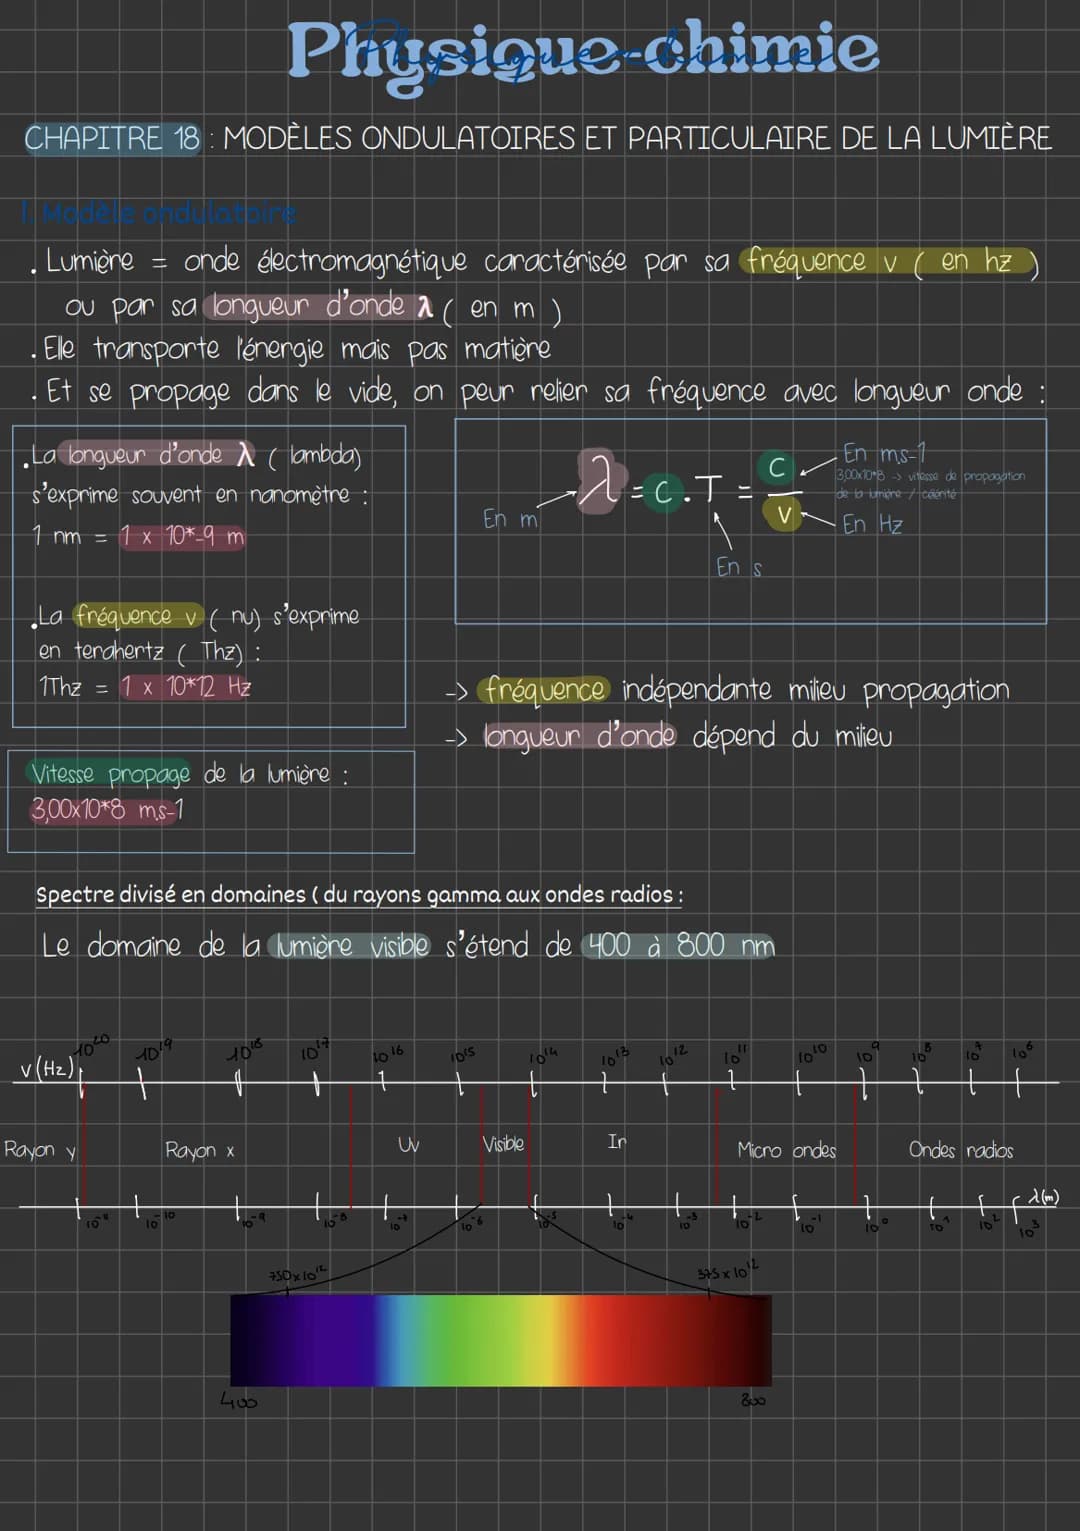 Physique-chimie
Physique-chimie
CHAPITRE 18 : MODÈLES ONDULATOIRES ET PARTICULAIRE DE LA LUMIÈRE
I. Modèle ondulatoire
. Lumière = onde électromagnétique caractérisée par sa fréquence v ( en hz )
ou par sa longueur d'onde λ ( en m )
. Elle transporte l'énergie mais pas matière
. Et se propage dans le vide, on peur relier sa fréquence avec longueur onde :
.La longueur d'onde λ ( lambda)
s'exprime souvent en nanomètre :
1 nm = 1 x 10*-9 m
.La fréquence v ( nu) s'exprime
en terahertz ( Thz) :
1Thz = 1 x 10*12 Hz
λ = c . T = c / v
En m
En s
En ms-1
3,00x10*8 -> vitesse de propagation
de la lumière / célérité
En Hz
-> fréquence indépendante milieu propagation
-> longueur d'onde dépend du milieu
Vitesse propage de la lumière :
3,00x10*8 m.s-1
Spectre divisé en domaines ( du rayons gamma aux ondes radios :
Le domaine de la lumière visible s'étend de 400 à 800 nm
v (Hz) 10²⁰ 10¹⁹ 10¹⁸ 10¹⁷ 10¹⁶ 10¹⁵ 10¹⁴ 10¹³ 10¹² 10¹¹ 10¹⁰ 10⁹ 10⁸ 10⁷ 10⁶
Rayon y Rayon x Uv Visible Ir Micro ondes Ondes radios
10⁻¹¹ 10⁻¹⁰ 10⁻⁹ 10⁻⁸ 10⁻⁷ 10⁻⁶ 10⁻⁵ 10⁻⁴ 10⁻³ 10⁻² 10⁻¹ 10⁰ 10¹ 10² 10³ λ(m)
750 x 10¹² 375 x 10¹²
400 800